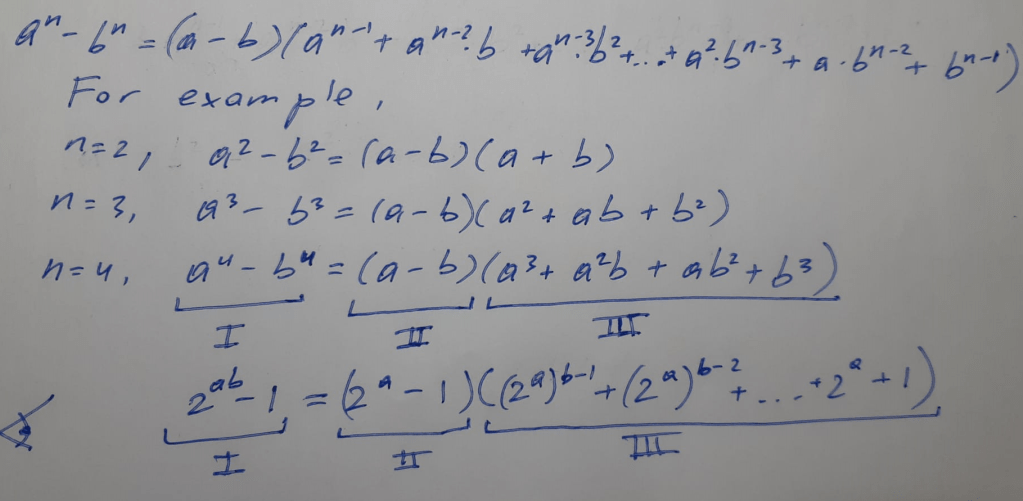 aⁿ - bⁿ = (a - b)(aⁿ⁻¹ + aⁿ⁻²·b + aⁿ⁻³·b² + ... + a²·bⁿ⁻³ + a·bⁿ⁻² + bⁿ⁻¹)
For example,
n=2, a² - b² = (a - b)(a + b)
n=3, a³ - b³ = (a - b)(a² + ab + b²)
n=4, a⁴ - b⁴ = (a - b)(a³ + a²b + ab² + b³)
I II III
2^{ab} - 1 = (2^a - 1)((2^a)^{b-1} + (2^a)^{b-2} + ... + 2^a + 1)
I II III